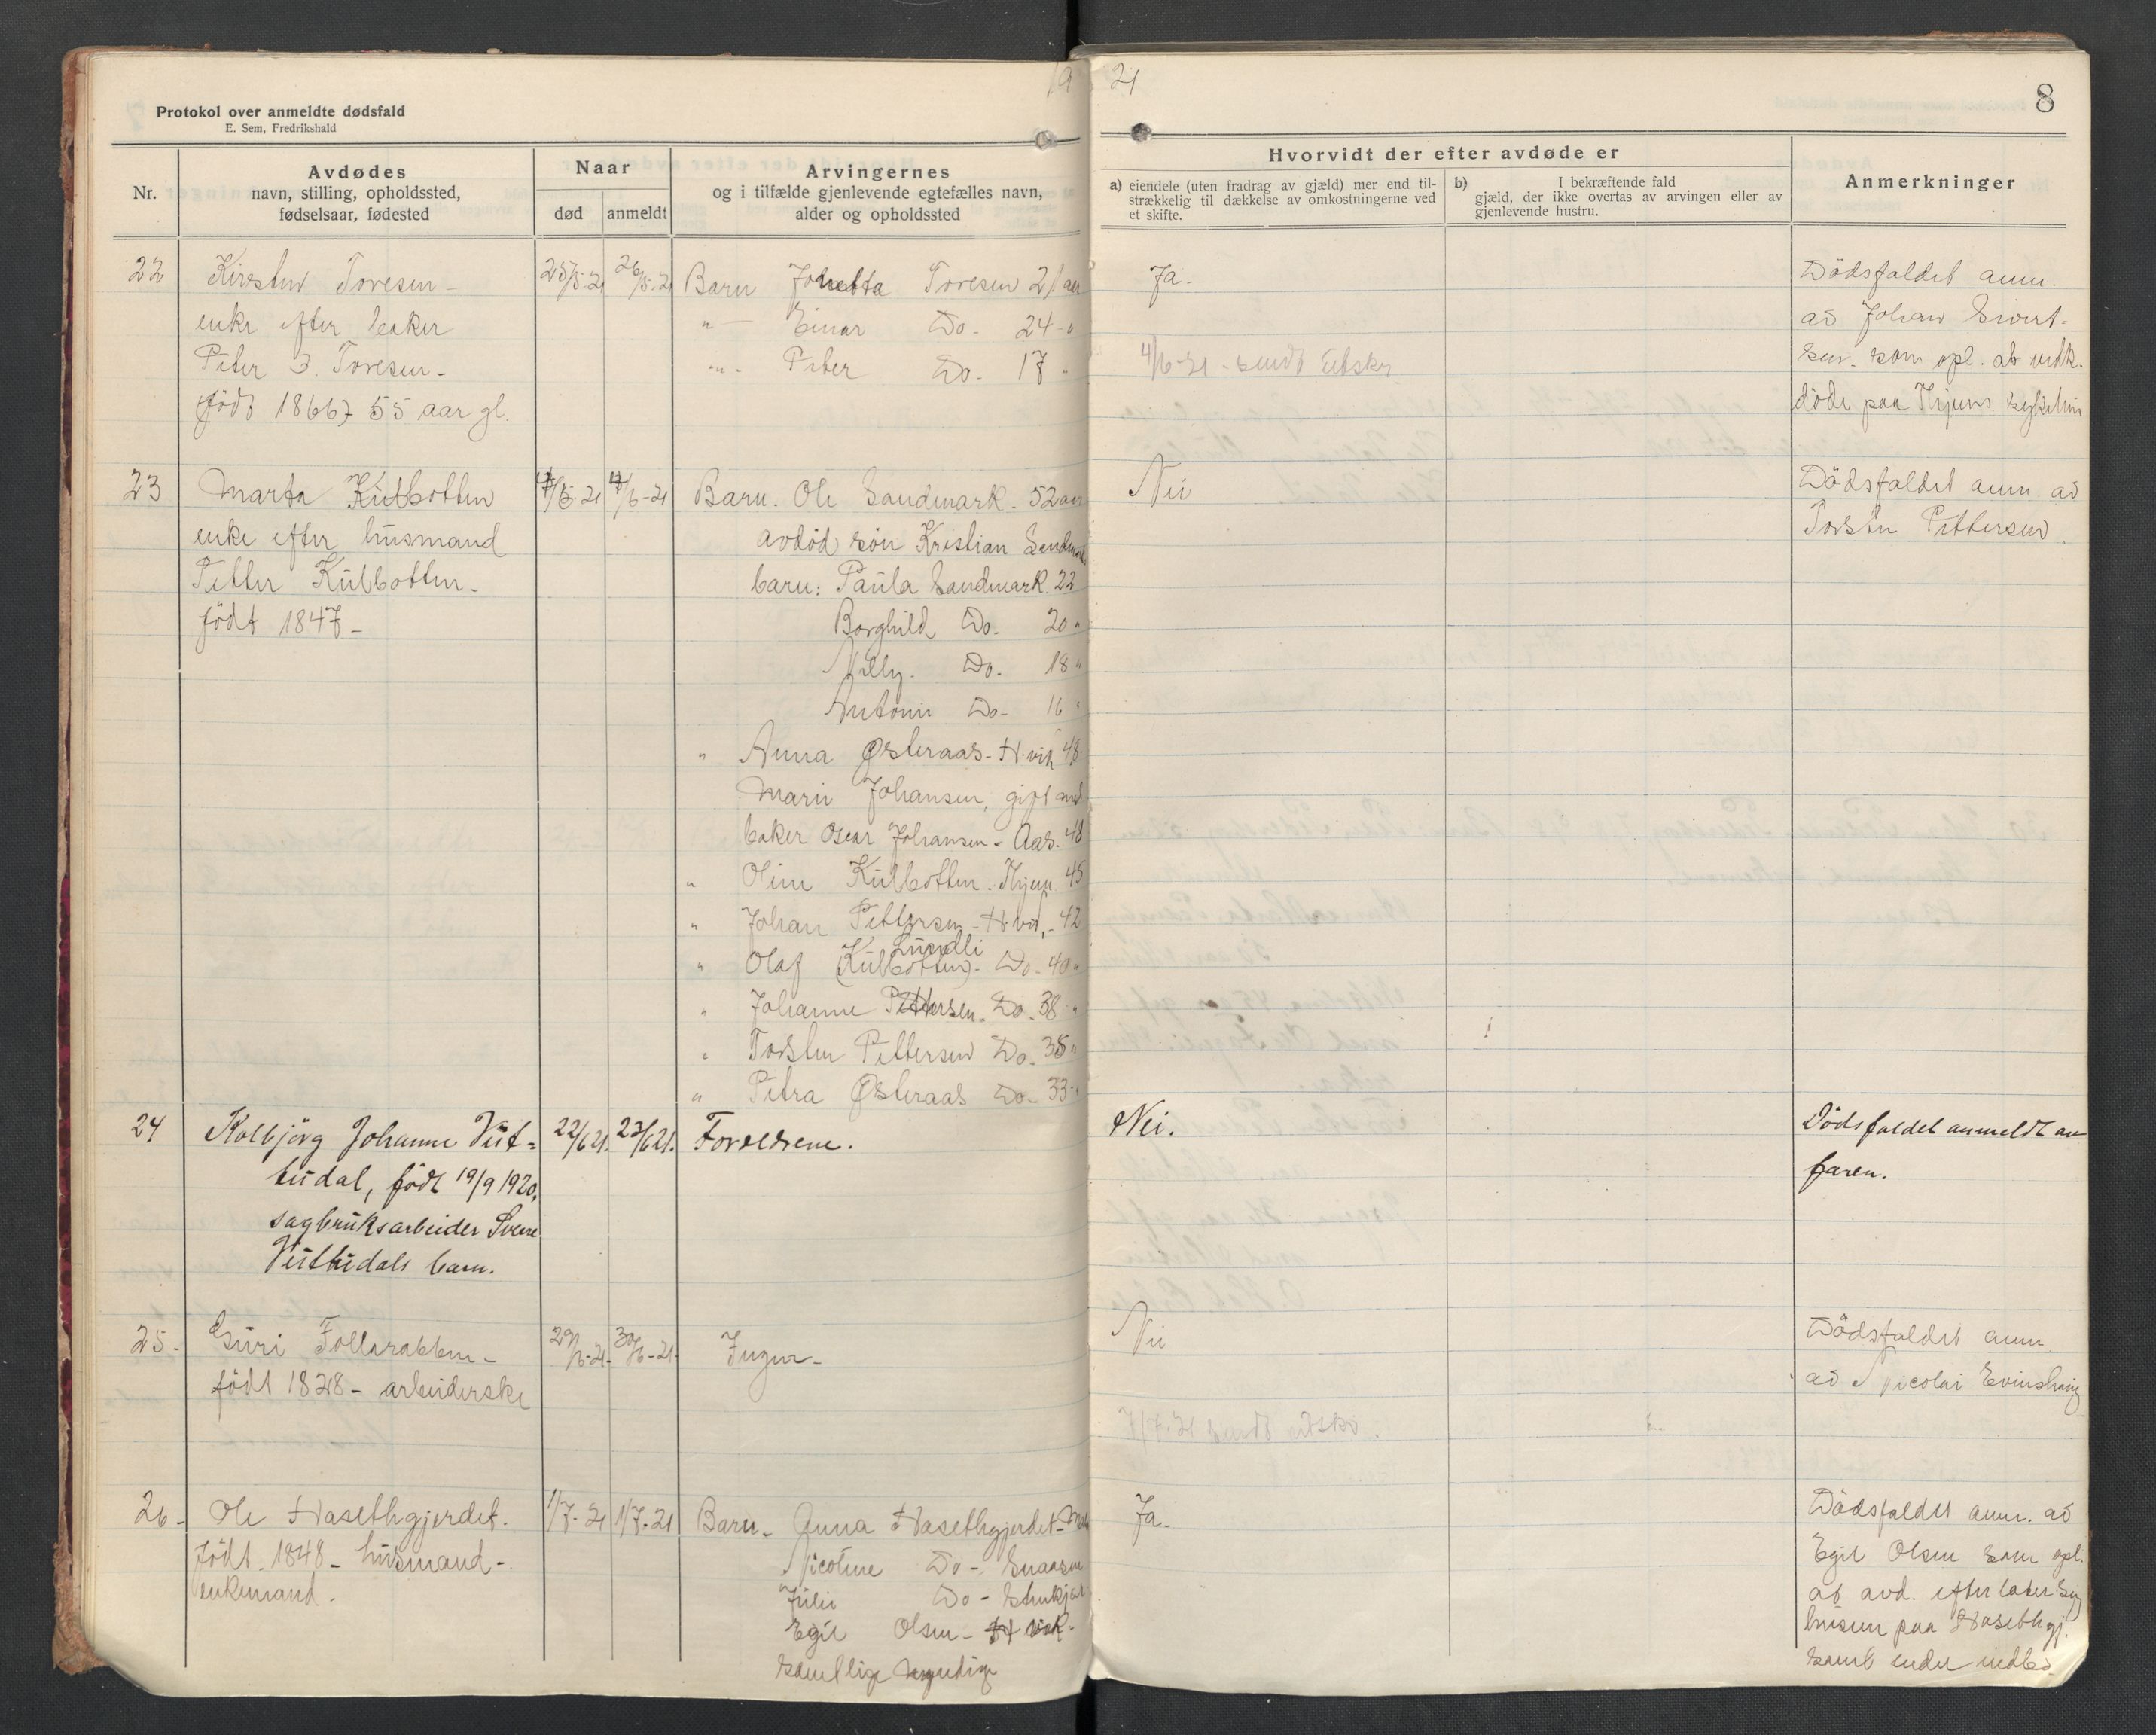 19 21
8
Protokol over anmeldte dødsfald
E. Sem, Fredrikshald
Nr.
Avdødes
navn, stilling, opholdssted,
fødselsaar, fødested
Naar
død
anmeldt
Arvingernes
og i tilfælde gjenlevende egtefælles navn,
alder og opholdssted
Hvorvidt der efter avdøde er
a) eiendele (uten fradrag av gjæld) mer end til-
strækkelig til dækkelse av omkostningerne ved
et skifte.
b) I bekræftende fald
gjæld, der ikke overtas av arvingen eller av
gjenlevende hustru.
Anmerkninger
22
Kirsten Toresen -
enke efter baker
Peter J. Toresen -
født 1866 55 aar gl.
25/5-21
26/5-21
Barn Johetta Toresen 21 aar
" Einar Do. 24 "
" Peter Do. 17 "
Ja.
4/6-21. sendt
Dödsfaldet anm.
av Johan Sivert-
sen. som opl. at vedk.
döde paa sykehus
23
Marta Kulbotten
enke efter husmand
Petter Kulbotten -
født 1847 -
4/6-21
4/6-21
Barn. Ole Sandmark. 52 aar
avdöd sön Kristian Sandmark
barn: Paula Sandmark 22
Borghild Do. 20 "
Nelly. Do. 18 "
Antoni Do- 16 "
" Anna Østeraas - H.vik 48
Marie Johansen, gift med
baker Oscar Johansen - Aas. 48
" Oline Kulbotten. 45
" Johan Pettersen - H.vik. - 42
Lundli
" Olaf (Kulbotten) - Do - 40 "
" Johanne Pettersen. Do. 38 "
" Torsten Pettersen Do. 35 "
" Petra Østeraas Do - 33 "
Nei
Dödsfaldet anm av
Torsten Pettersen.
24
Kolbjörg Johanne Vut-
tudal, född 19/9 1920,
sagbruksarbeider Sverre
Vuttudals barn.
22/6 21.
23/6 21.
Foreldrene.
Nei.
Dödsfaldet anmeldt av
faren.
25.
Guri Follarabben -
født 1828 - arbeiderske
29/6-21-
30/6-21-
Ingen -
Nei
7/7-21 sendt
Dödsfaldet anm.
av Nicolai
26-
Ole Hasethgjerdet.
født. 1848 - husmand -
enkemand.
1/7-21
1/7-21
Barn - Anna Hasethgjerdet -
Nicoline Do - Snaasen
Julie Do - Stenkjær
Egil Olsen - H vik -
samtlige myndige
Ja.
Dödsfaldet anm. av
Egil Olsen som opl.
at avd. efterlater sig
husene paa Hasethgj.
samt endel indbo.